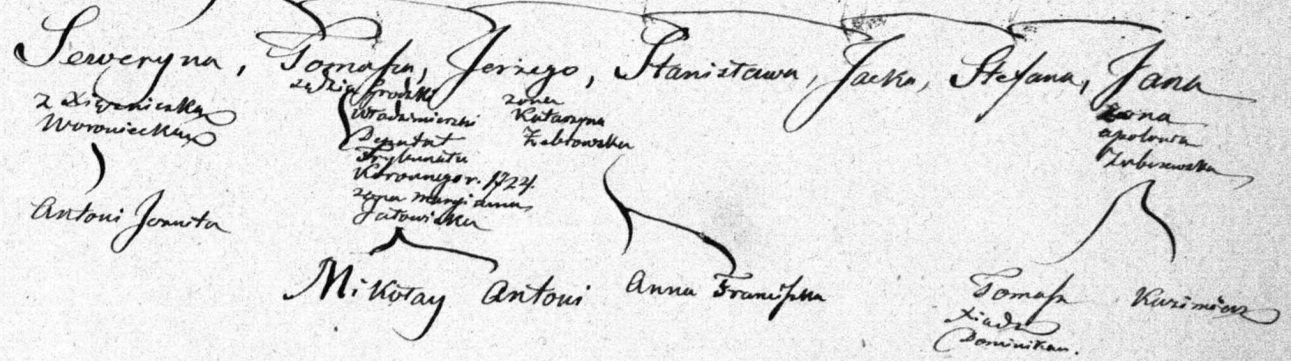 Seweryna, Tomasza, Jerzego, Stanisława, Jacka, Stefana, Jana
z Xiężniczką
Woroniecką
Antoni Jezuita
Sędzia Grodzki
Włodzimierski
Deputat
Trybunału
Koronnego r. 1724.
żona Maryianna
Jałowicka
Mikołay Antoni
żona
Katarzyna
Żabrowska
Anna Franciszka
żona
Apolonia
Tomasz
Xiądz
Dominikan.
Kazimierz